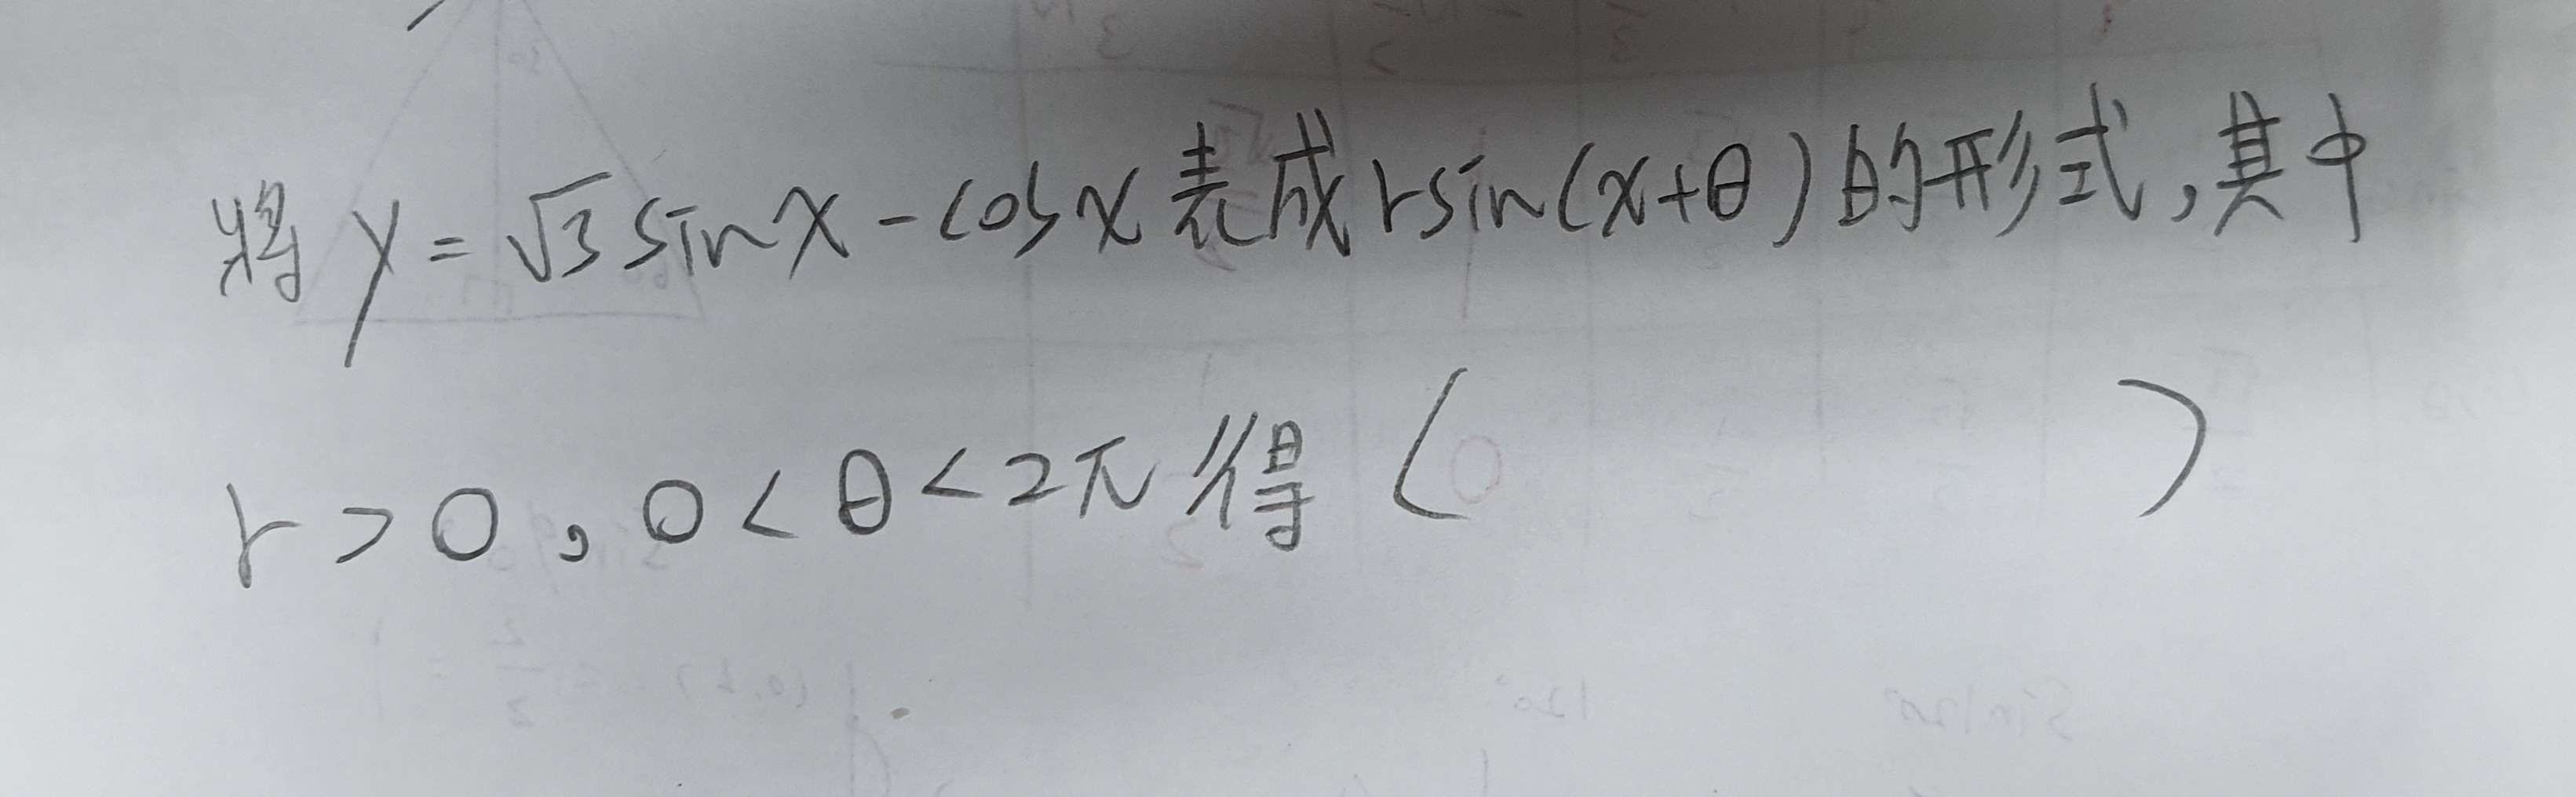 將y=√3sinx-cosx表成rsin(x+θ)的形式,其中
r>0,0<θ<2π得( )